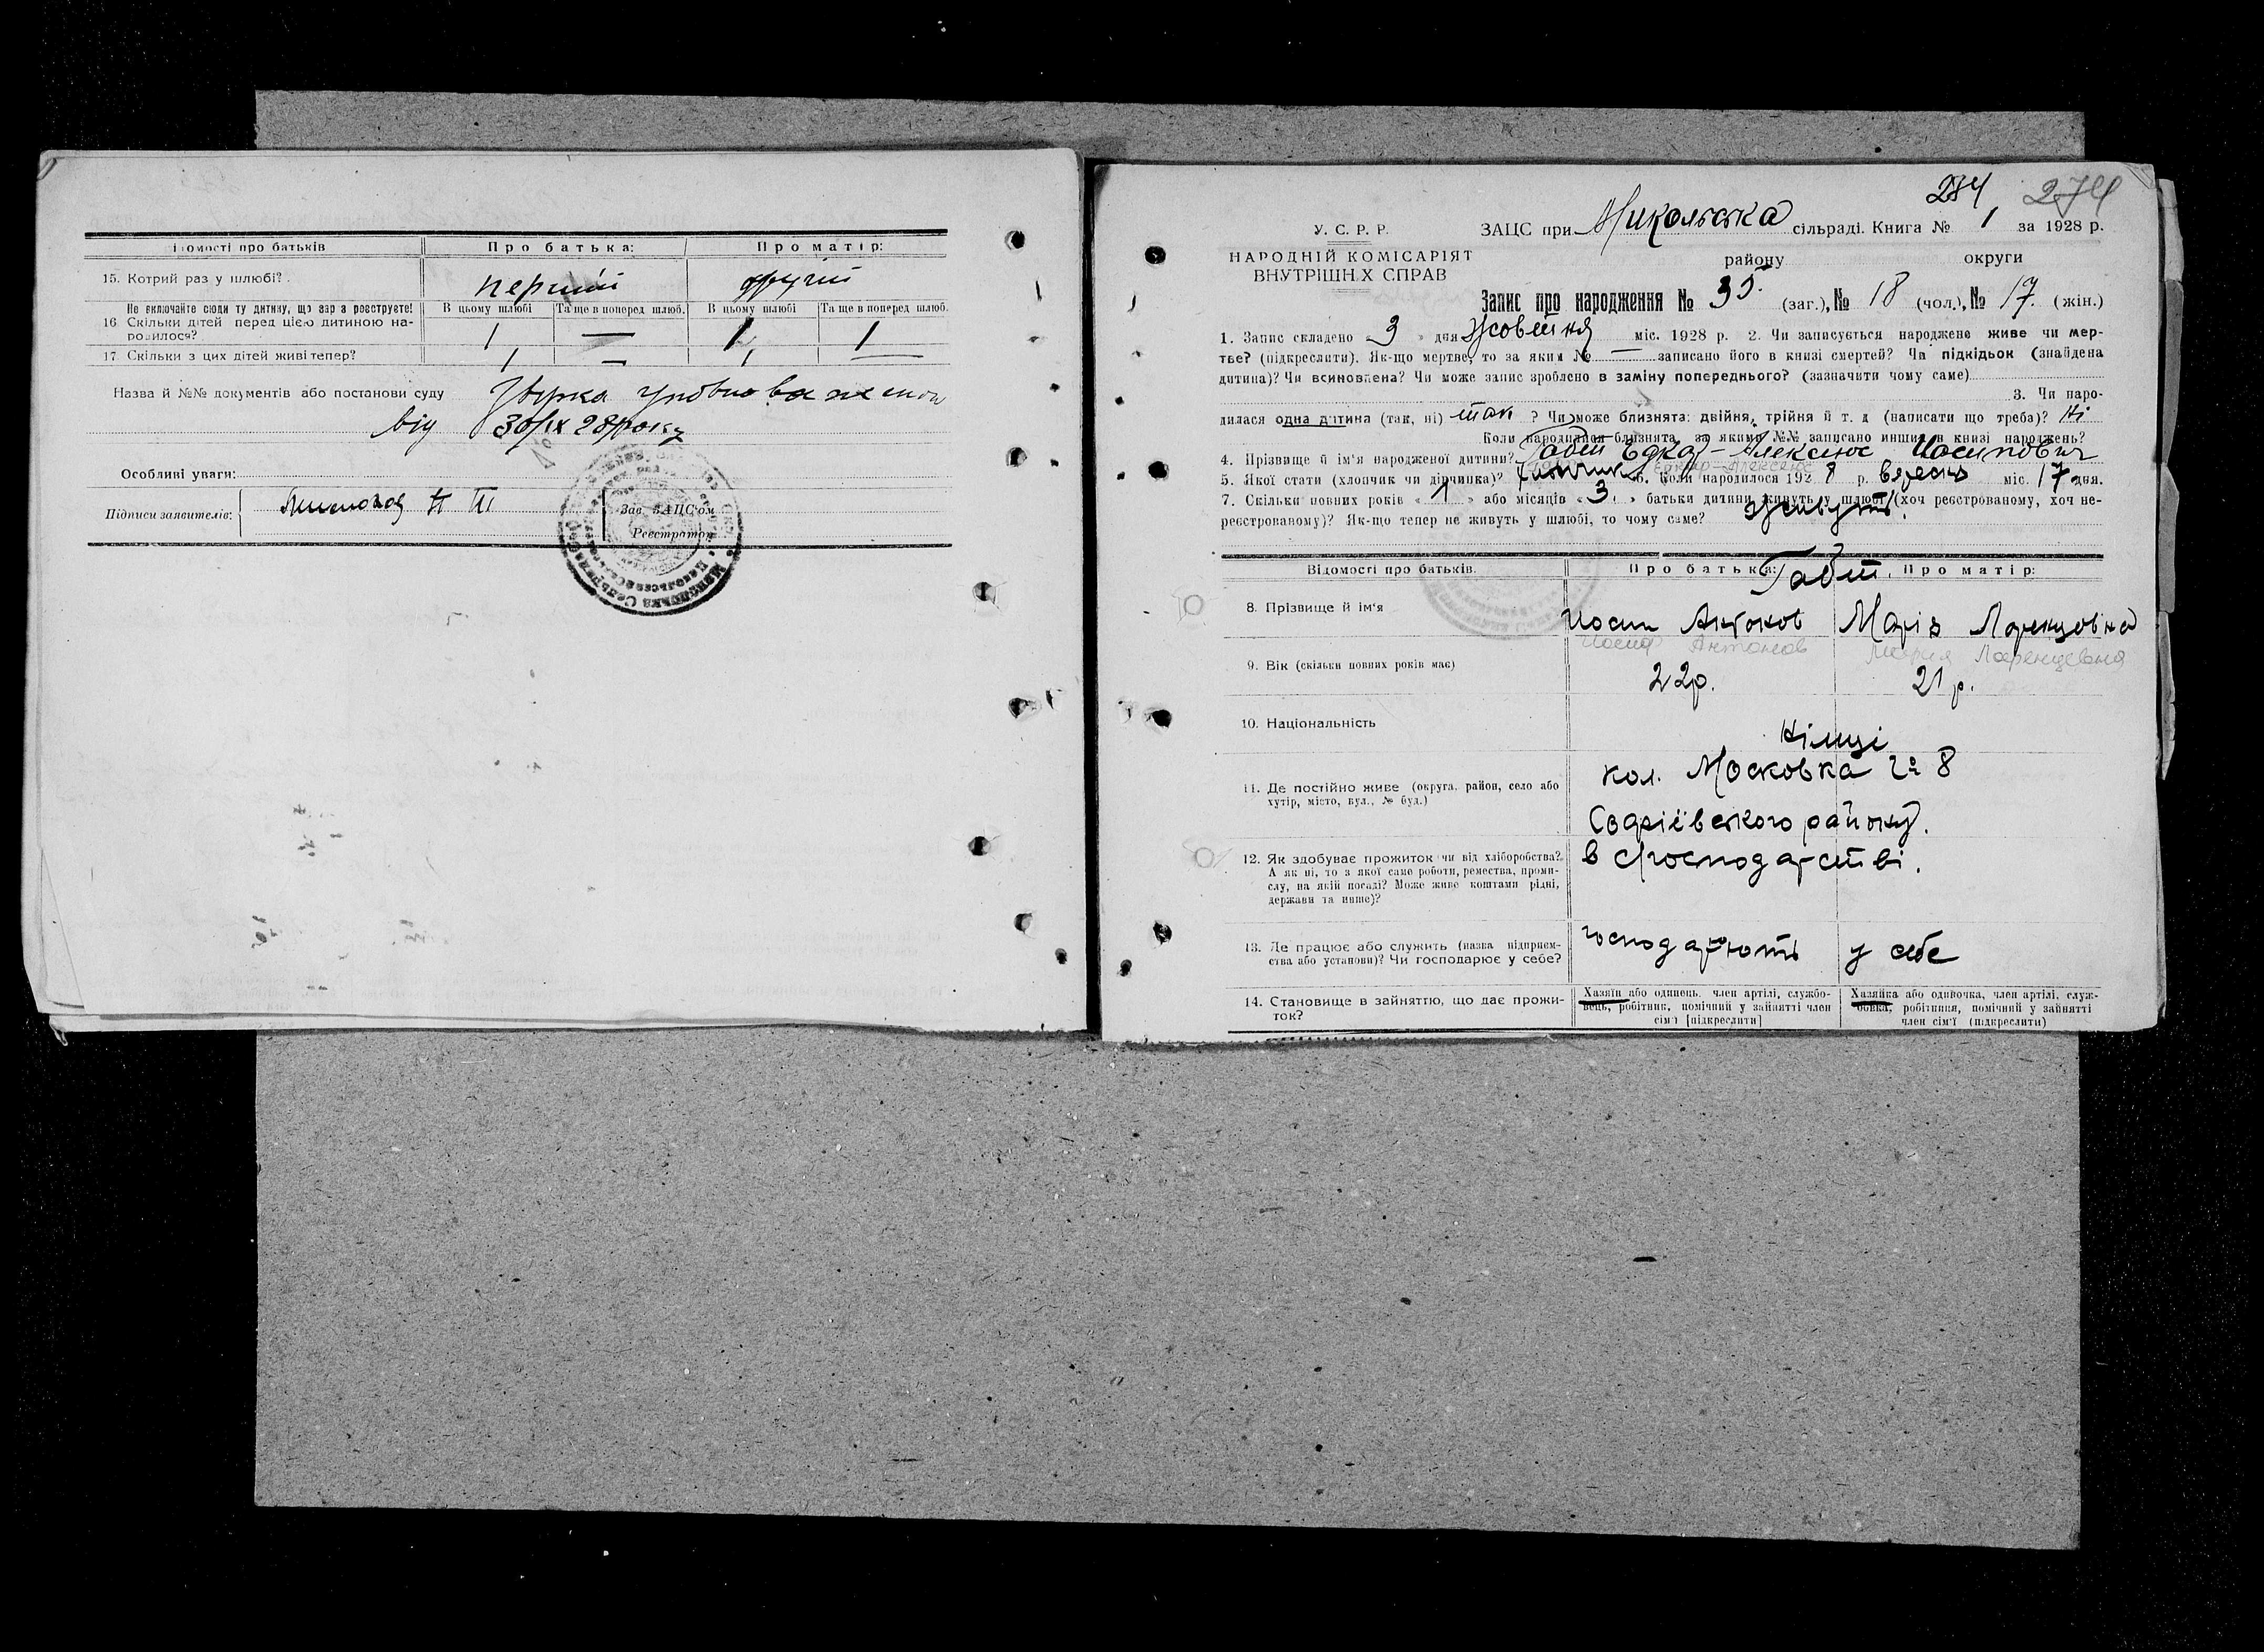 Відомості про батьків Про батька: Про матір:
15. Котрий раз у шлюбі? перший другий
Не включайте сюди ту дитину, що зараз реєструєте! В цьому шлюбі Та ще в поперед. шлюб. В цьому шлюбі Та ще в поперед. шлюб.
16 Скільки дітей перед цією дитиною на-
родилося? 1 — 1 1
17. Скільки з цих дітей живі тепер? 1 — 1 —
Назва й №№ документів або постанови суду
від 30/IX 28 року
Особливі уваги:
Підписи заявителів:
Зав. ЗАЦС'ом
Реєстратор
274 274
У. С. Р. Р. ЗАЦС при Микольська сільраді. Книга № 1 за 1928 р.
НАРОДНІЙ КОМІСАРІЯТ
ВНУТРІШНІХ СПРАВ
району округи
Запис про народження № 35 (заг.), № 18 (чол.), № 17 (жін.)
1. Запис складено „3“ дня Жовтня міс. 1928 р. 2. Чи записується народжене живе чи мер-
тве? (підкреслити). Як-що мертве, то за яким № — записано його в книзі смертей? Чи підкідьок (знайдена
дитина)? Чи всиновлена? Чи може запис зроблено в заміну попереднього? (зазначити чому саме)
3. Чи наро-
дилася одна дитина (так, ні) так ? Чи може близнята: двійня, трійня й т. д. (написати що треба)? Ні
Коли народилися близнята, за якими №№ записано инших в книзі народжень?
4. Прізвище й ім'я народженої дитини? Габт Едкар-Алексюс Иосипович
5. Якої стати (хлопчик чи дівчинка)? хлопчик 6. Коли народилося 1928 р. вересня міс. 17 дня.
7. Скільки повних років „1“ або місяців „3“ батьки дитини живуть у шлюбі (хоч реєстрованому, хоч не-
реєстрованому)? Як-що тепер не живуть у шлюбі, то чому саме? живуть.
Відомості про батьків. Про батька: Про матір:
Габт.
8. Прізвище й ім'я Иосип Антонов Марія Лоренцовна
Иосиф Антонов Мария Лоренцевна
9. Вік (скільки повних років має) 22р. 21р.
10. Національність Німці
11. Де постійно живе (округа, район, село або
хутір, місто, вул., № буд.)
кол. Московка № 8
Софіївського району.
12. Як здобуває прожиток чи від хліборобства? в с/господарстві.
А як ні, то з якої саме роботи, ремества, проми-
слу, на якій посаді? Може живе коштами рідні,
держави та инше)?
13. Де працює або служить (назва підприєм-
ства або установи)? Чи господарює у себе?
господарюють у себе
14. Становище в зайняттю, що дає прожи-
ток?
Хазяїн або одинець, член артілі, службо-
вець, робітник, помічний у зайнятті член
сім'ї [підкреслити]
Хазяйка або одиночка, член артілі, служ-
бовка, робітниця, помічний у зайнятті
член сім'ї (підкреслити)